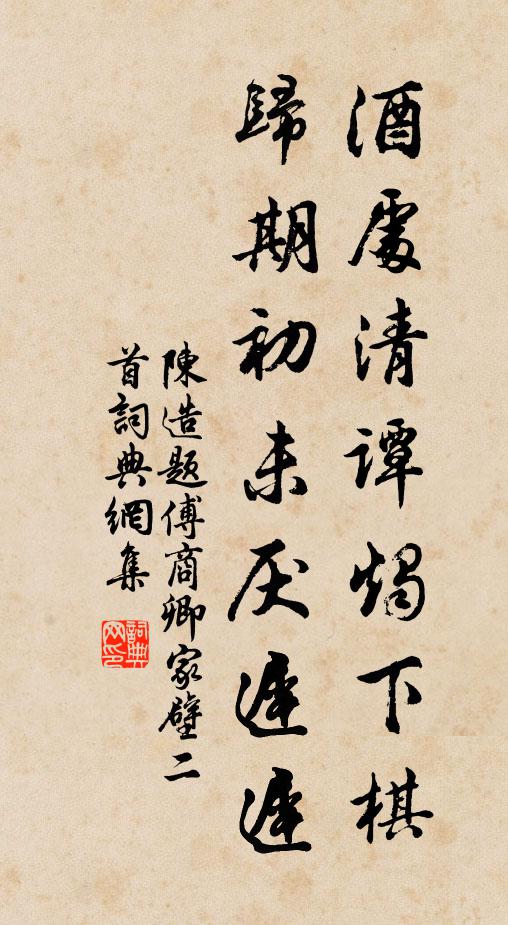 酒處清譚燭下棋
歸期初未厌遲遲
陳造題傅商卿家壁二
首詞典網集
詞典網印